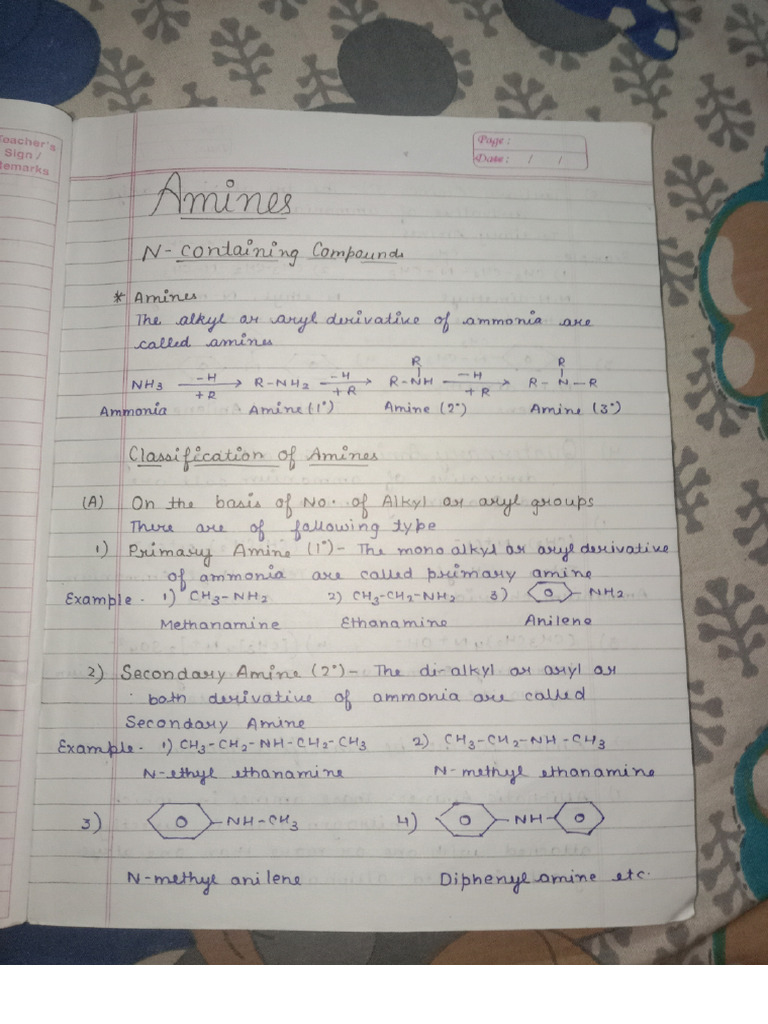 Teacher's
Sign /
Remarks
Page :
Date : / /
Amines
N- containing Compounds
* Amines
The alkyl or aryl derivative of ammonia are
called amines
NH3 —H +R → R-NH2 —H +R → R-NH R —H +R → R-N-R R
Ammonia Amine (1°) Amine (2°) Amine (3°)
Classification of Amines
(A) On the basis of No. of Alkyl or aryl groups
There are of following type
1) Primary Amine (1°) - The mono alkyl or aryl derivative
of ammonia are called primary amine
Example - 1) CH3-NH2 2) CH3-CH2-NH2 3) -NH2
Methanamine Ethanamine Anilene
2) Secondary Amine (2°) - The di-alkyl or aryl or
both derivative of ammonia are called
Secondary Amine
Example - 1) CH3-CH2-NH-CH2-CH3 2) CH3-CH2-NH-CH3
N-ethyl ethanamine N-methyl ethanamine
3) -NH-CH3 4) -NH-
N-methyl anilene Diphenyl amine etc.